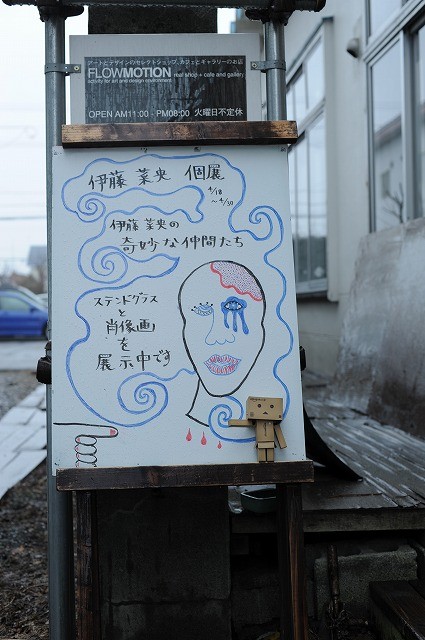 アートとデザインのセレクトショップ、カフェとギャラリーのお店
FLOWMOTION real shop + cafe and gallery
activity for art and design environment
OPEN AM11:00 - PM08:00 火曜日不定休
伊藤 菜央 個展
4/18
~4/30
伊藤 菜央の
奇妙な仲間たち
ステンドグラス
と
肖像画
を
展示中です